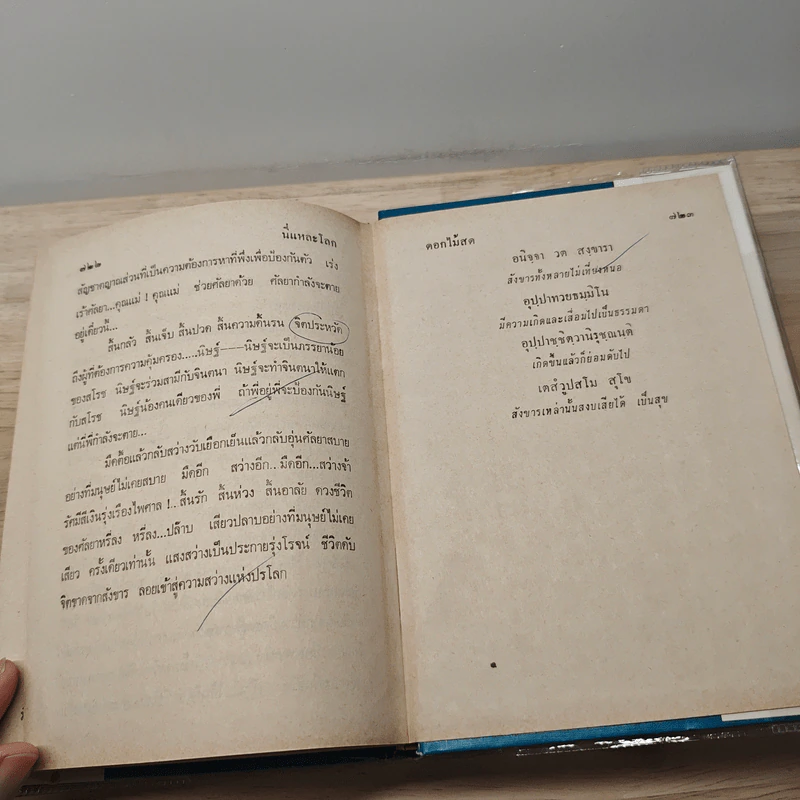 ๗๒๒
นี่แหละโลก
สัญชาตญาณส่วนที่เป็นความต้องการหาที่พึ่งเพื่อป้องกันตัว เร่ง
เร้าศัลยา...คุณแม่ ! คุณแม่ ช่วยศัลยาด้วย ศัลยากำลังจะตาย
อยู่เดี๋ยวนี้...
สิ้นกลัว สิ้นเจ็บ สิ้นปวด สิ้นความดิ้นรน จิตประหวัด
ถึงผู้ที่ต้องการความคุ้มครอง.....นิษฐ์——นิษฐ์จะเป็นภรรยาน้อย
ของสโรช นิษฐ์จะร่วมสามีกับจินตนา นิษฐ์จะทำจินตนาให้แตก
กับสุโรช นิษฐ์น้องคนเดียวของพี่ ถ้าพี่อยู่พี่จะป้องกันนิษฐ์
แต่นี่พี่กำลังจะตาย...
มืดตื้อแล้วกลับสว่างวับเยือกเย็นแล้วกลับอุ่นศัลยาสบาย
อย่างที่มนุษย์ไม่เคยสบาย มืดอีก สว่างอีก.. มืดอีก...สว่างจ้า
รัศมีสีเงินรุ่งเรืองไพศาล !.. สิ้นรัก สิ้นห่วง สิ้นอาลัย ดวงชีวิต
ของศัลยาหรี่ลง หรี่ลง...ปล๊าบ เสียวปลาบอย่างที่มนุษย์ไม่เคย
เสียว ครั้งเดียวเท่านั้น แสงสว่างเป็นประกายรุ่งโรจน์ ชีวิตดับ
จิตขาดจากสังขาร ลอยเข้าสู่ความสว่างแห่งปรโลก
ดอกไม้สด
๗๒๓
อนิจฺจา วต สงฺขารา
สังขารทั้งหลายไม่เที่ยงหนอ
อุปฺปาทวยธมฺมิโน
มีความเกิดและเสื่อมไปเป็นธรรมดา
อุปฺปาชฺชิตฺวานิรุชฺฌนฺติ
เกิดขึ้นแล้วก็ย่อมดับไป
เตสํวูปสโม สุโข
สังขารเหล่านั้นสงบเสียได้ เป็นสุข